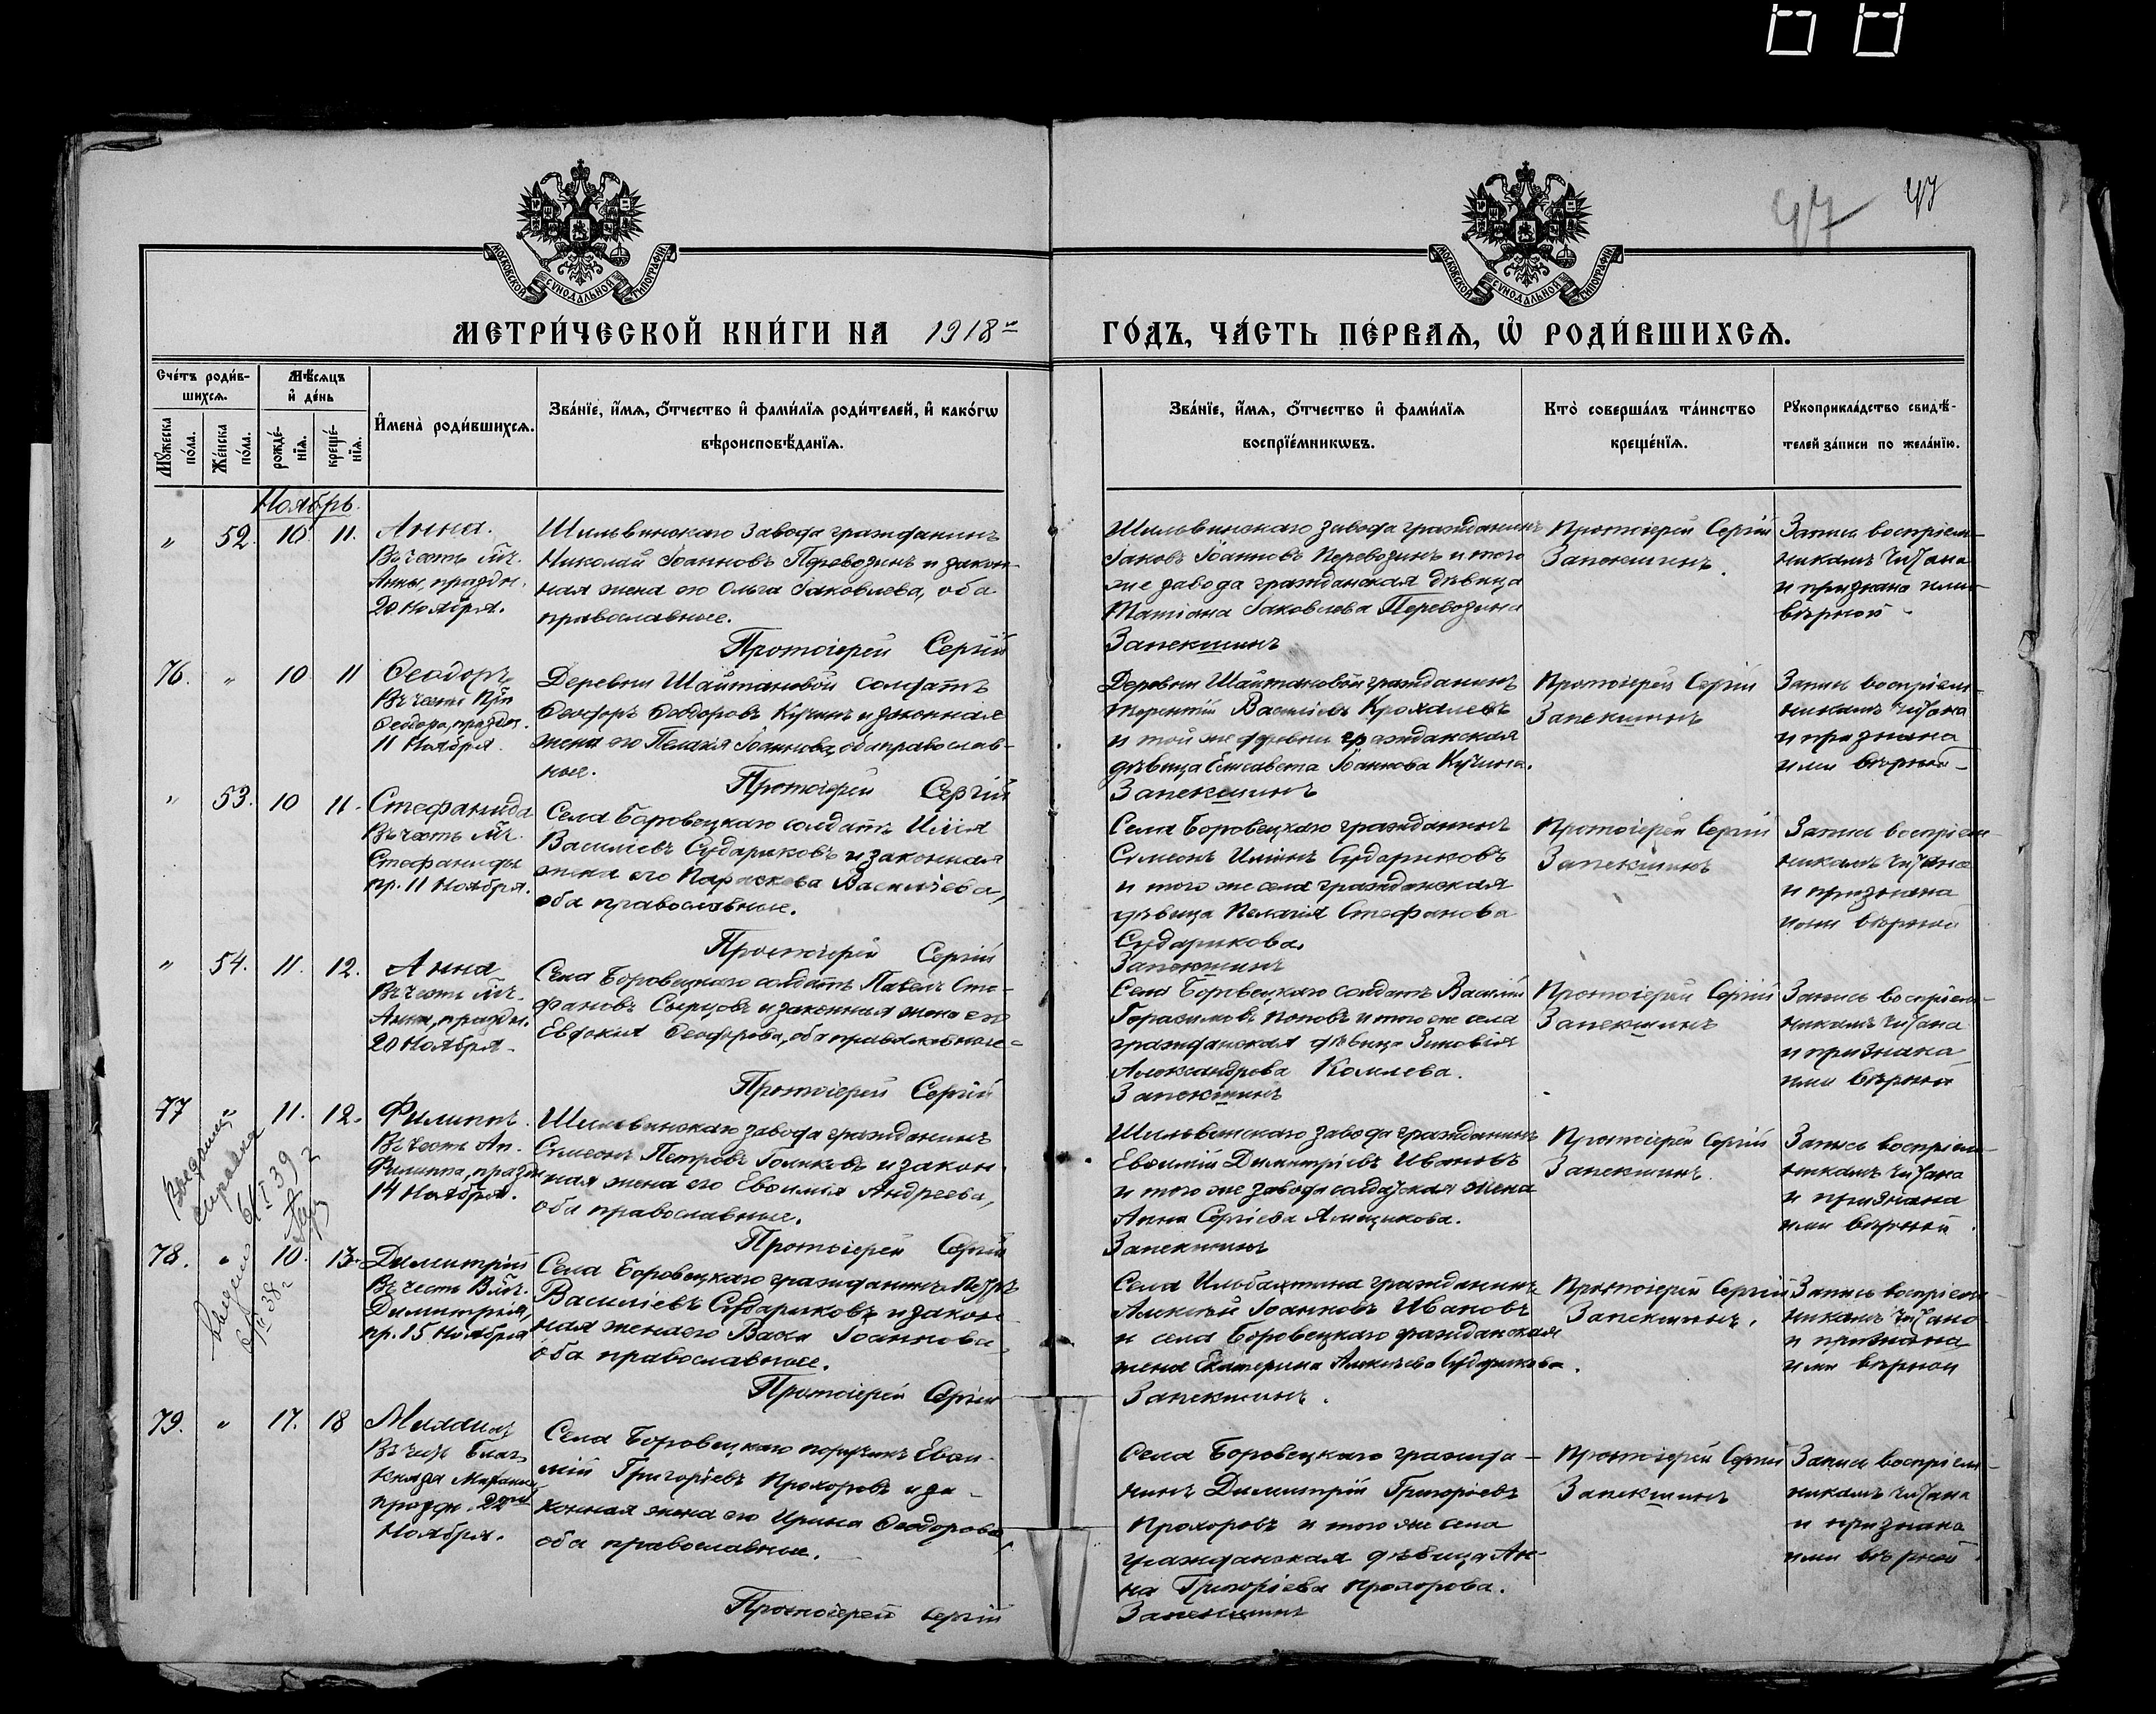 47 47
МОСКОВСКОЙ СѴНОДАЛЬНОЙ ТИПОГРАФІИ
МОСКОВСКОЙ СѴНОДАЛЬНОЙ ТИПОГРАФІИ
МЕТРИ́ЧЕСКОЙ КНИ́ГИ НА 1918 ГО́ДЪ, ЧА́СТЬ ПЕ́РВАѦ, Ѽ РОДИ́ВШИХСѦ.
Счéтъ роди́в-
шихсѧ.
Мꙋ́жеска по́ла.
Же́нска по́ла.
Мѣ́сѧцъ и҆ де́нь
рожде́-нїѧ.
креще́-нїѧ.
И҆мена̀ роди́вшихсѧ.
Зва́нїе, и҆́мѧ, ѻ҆́тчество и҆ фами́лїѧ роди́телей, и҆ како́гѡ
вѣроисповѣ́данїѧ.
Зва́нїе, и҆́мѧ, ѻ҆́тчество и҆ фами́лїѧ
воспрїе́мникѡвъ.
Кто̀ соверша́лъ та́инство
креще́нїѧ.
Рꙋкоприкла́дство свидѣ́-
телей за́писи по жела́нїю.
Ноябрь.
" 52. 10. 11. Анна.
Въ честь мч.
Анны, праздн.
20 Ноября.
Шильвинскаго завода гражданинъ
Николай Іоанновъ Перевозинъ и закон-
ная жена его Ольга Іаковлева, оба
православные.
Протоіерей Сергій
Шильвинскаго завода гражданинъ
Іаковъ Іоанновъ Перевозинъ и того
же завода гражданская дѣвица
Татіана Іаковлева Перевозина
Запекшинъ
Протоіерей Сергій
Запекшинъ.
Запись воспріем-
никамъ читана
и признана ими
вѣрной
76. " 10 11 Ѳеодоръ
Въ честь Прп
Ѳеодора, праздн.
11 Ноября.
Деревни Шайтановой солдатъ
Ѳеодоръ Ѳеодоровъ Кучинъ и законная
жена его Пелагія Іоаннова, оба православ-
ные.
Протоіерей Сергій
Деревни Шайтановой гражданинъ
Терентій Васильевъ Крохалевъ
и той же деревни гражданская
дѣвица Елисавета Іоаннова Кучина.
Запекшинъ
Протоіерей Сергій
Запекшинъ
Запись воспріем-
никамъ читана
и признана
ими вѣрной
" 53. 10 11. Стефанида
Въ честь мч.
Стефаниды
пр. 11 Ноября.
Села Боровецкаго солдатъ Илія
Василіевъ Судариковъ и законная
жена его Параскева Василіева,
оба православные.
Протоіерей Сергій
Села Боровецкаго гражданинъ
Симеонъ Иліинъ Судариковъ
и того же села гражданская
дѣвица Пелагія Стефанова
Сударикова.
Запекшинъ
Протоіерей Сергій
Запекшинъ
Запись воспріем-
никамъ читана
и признана
ими вѣрной
" 54. 11. 12. Анна
Въ честь мч.
Анны, праздн.
20 Ноября.
Села Боровецкаго солдатъ Павелъ Сте-
фановъ Сырцовъ и законная жена его
Евдокія Ѳеодорова, оба православные
Протоіерей Сергій
Села Боровецкаго солдатъ Василій
Герасимовъ Поповъ и того же села
гражданская дѣвица Зиновія
Александрова Комлева.
Запекшинъ
Протоіерей Сергій
Запекшинъ
Запись воспріем-
никамъ читана
и признана
ими вѣрной
77 " 11. 12. Филиппъ.
Въ честь Ап.
Филиппа, праздн
14 Ноября.
Шильвинскаго завода гражданинъ
Симеонъ Петровъ Голиковъ и закон
ная жена его Евѳимія Андреева,
оба православные.
Протоіерей Сергій
Шильвинскаго завода гражданинъ
Евѳимій Димитріевъ Ивановъ
и того же завода солдатская жена
Анна Сергіева Ямщикова.
Запекшинъ
Протоіерей Сергій
Запекшинъ.
Запись воспріем-
никамъ читана
и признана
ими вѣрной.
справка
6/I 39
78. " 10. 13 Димитрій
Въ честь Влмч.
Димитрія,
пр. 15 Ноября
Села Боровецкаго гражданинъ Петръ
Василіевъ Судариковъ и закон
ная жена его Васса Іоаннова,
оба православные.
Протоіерей Сергій
Села Ильбахтина гражданинъ
Алексѣй Іоанновъ Ивановъ
и села Боровецкаго гражданская
жена Екатерина Алексѣева Сударикова.
Запекшинъ.
Протоіерей Сергій
Запекшинъ.
Запись воспріем
никамъ читана
и признана
ими вѣрной
79. " 17. 18 Михаилъ
Въ честь Благ.
Князя Михаила
праздн. 22
Ноября.
Села Боровецкаго поручикъ Евѳи-
мій Григоріевъ Прохоровъ и за-
конная жена его Ирина Ѳеодорова,
оба православные.
Протоіерей Сергій
Села Боровецкаго гражда-
нинъ Димитрій Григоріевъ
Прохоровъ и того же села
гражданская дѣвица Ан-
на Григоріева Прохорова.
Запекшинъ
Протоіерей Сергій
Запекшинъ
Запись воспріем-
никамъ читана
и признана
ими вѣрной.